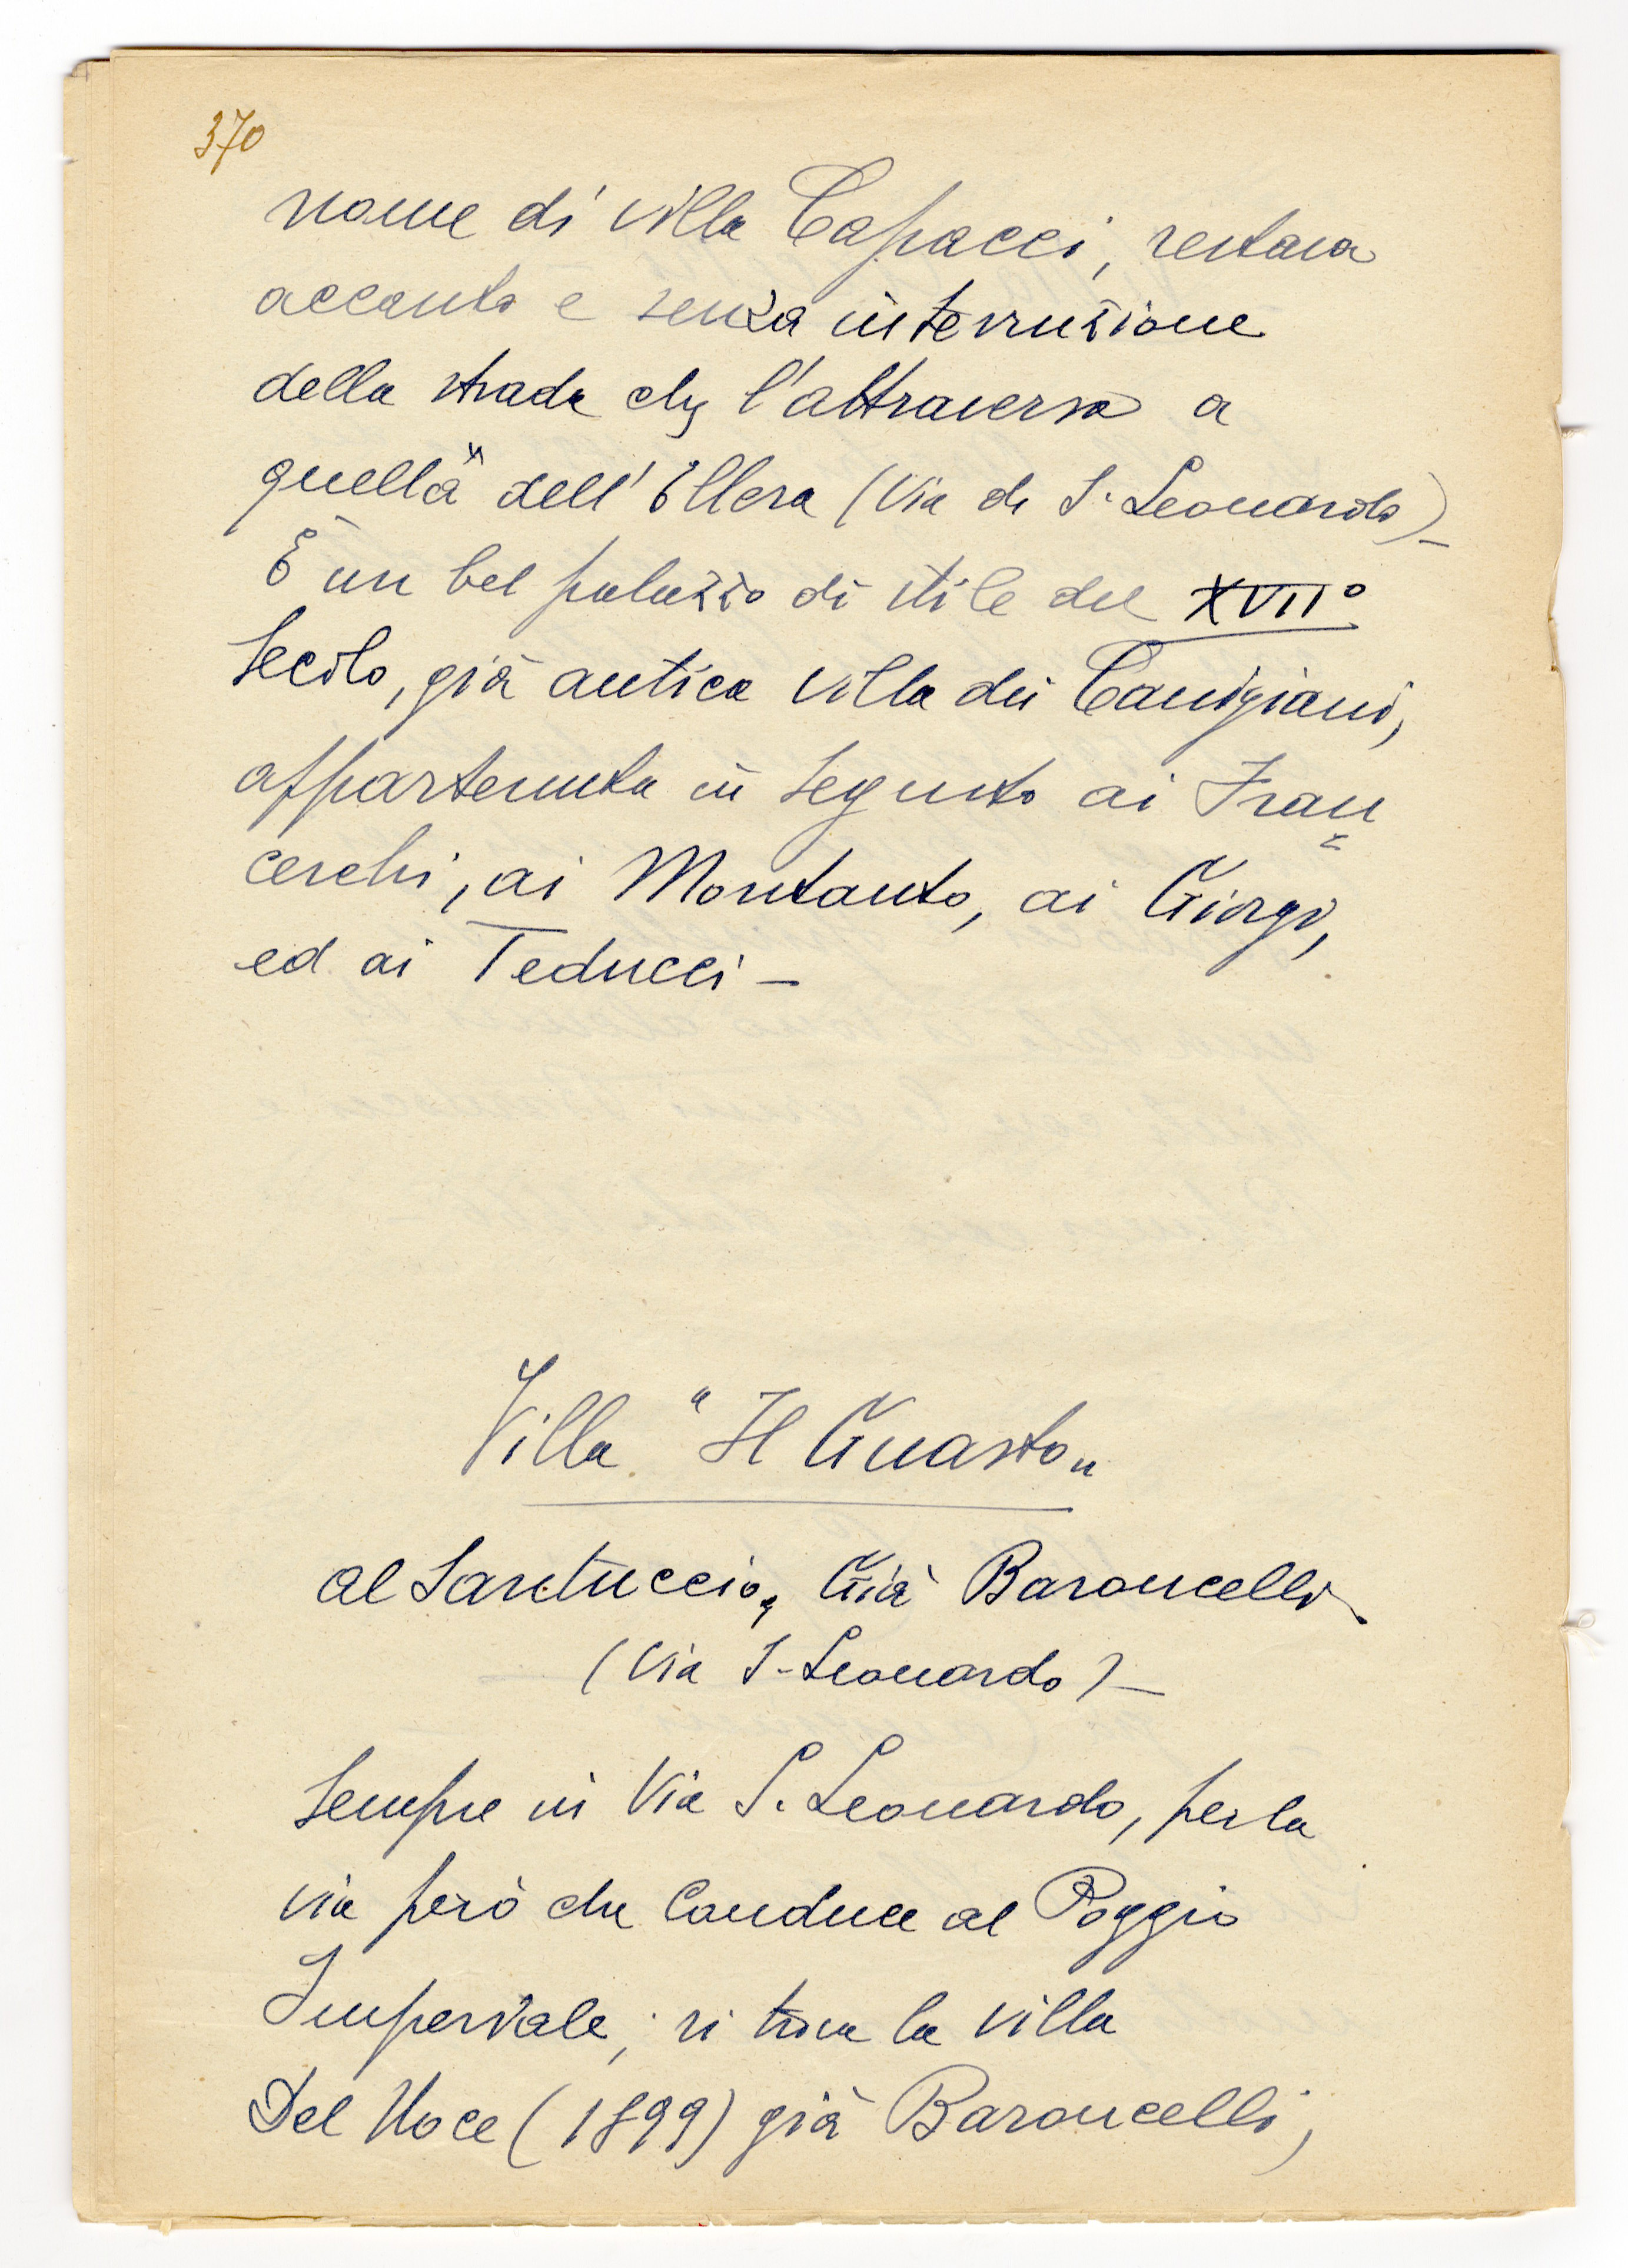 370
nome di villa Capacci, restava
accanto e senza interruzione
della strada che l'attraversa a
quella" dell'Ellera (Via di S. Leonardo) –
È un bel palazzo di stile del XVII°
Secolo, già antica villa dei Canigiani,
appartenuta in seguito ai Fran=
ceschi, ai Montauto, ai Giorgi,
ed ai Teducci –
Villa "Il Guasto„
al Santuccio, Già Baroncelli
(Via S. Leonardo) –
Sempre in Via S. Leonardo, per la
via però che conduce al Poggio
Imperiale, si trova la villa
Del Noce (1899) già Baroncelli,